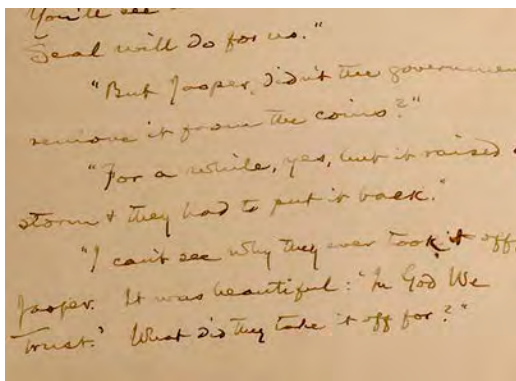 You'll see
Seal will do for us."
"But Jasper, didn't the governmen
remove it from the coins?"
"For a while, yes, but it raised
storm & they had to put it back."
"I can't see why they ever took it off,
Jasper. It was beautiful: "In God We
Trust." What did they take it off for?"